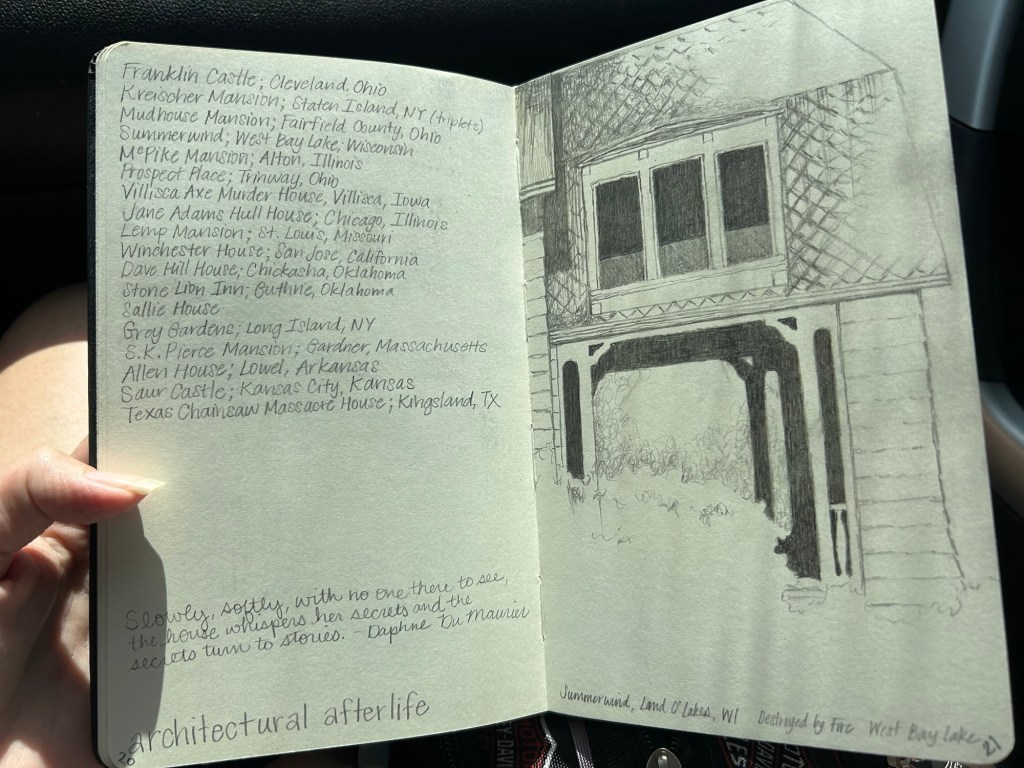 Franklin Castle; Cleveland, Ohio
Kreischer Mansion; Staten Island, NY (triplets)
Mudhouse Mansion; Fairfield County, Ohio
Summerwind; West Bay Lake, Wisconsin
McPike Mansion; Alton, Illinois
Prospect Place; Trinway, Ohio
Villisca Axe Murder House, Villisca, Iowa
Jane Adams Hull House; Chicago, Illinois
Lemp Mansion; St. Louis, Missouri
Winchester House; San Jose, California
Dave Hill House; Chickasha, Oklahoma
Stone Lion Inn; Guthrie, Oklahoma
Sallie House
Grey Gardens; Long Island, NY
S.K. Pierce Mansion; Gardner, Massachusetts
Allen House; Lowel, Arkansas
Saur Castle; Kansas City, Kansas
Texas Chainsaw Massacre House; Kingsland, TX
Slowly, softly, with no one there to see,
the house whispers her secrets and the
secrets turn to stories. - Daphne Du Maurier
architectural afterlife
20
Summerwind, Land O'Lakes, WI Destroyed by Fire West Bay Lake
21